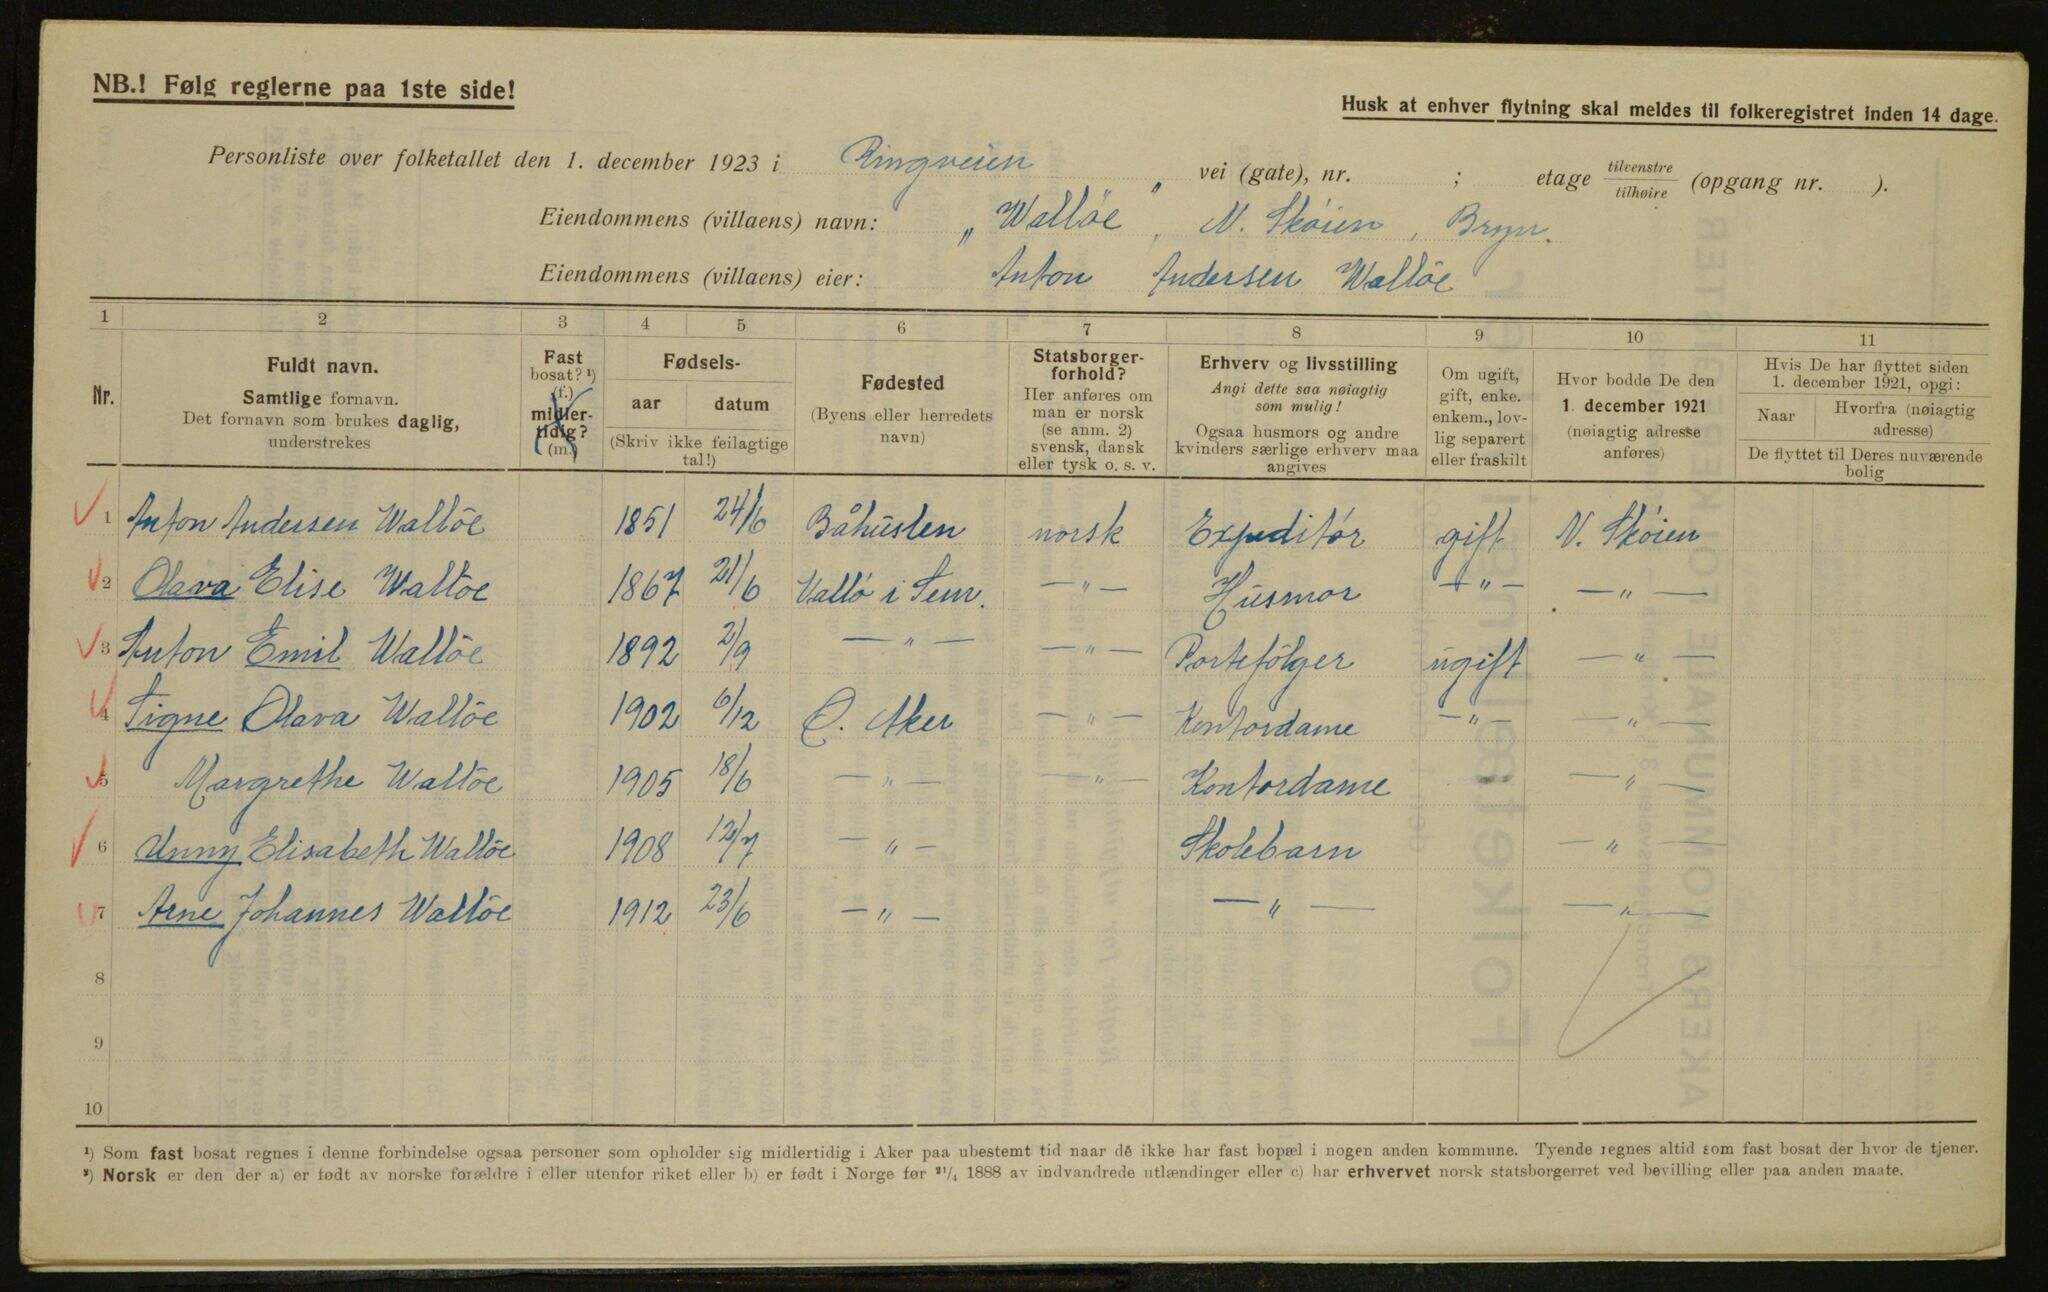 NB.! Følg reglerne paa 1ste side!
Husk at enhver flytning skal meldes til folkeregistret inden 14 dage.
Personliste over folketallet den 1. december 1923 i Ringveien vei (gate), nr. ; etage tilvenstre/tilhøire (opgang nr. ).
Eiendommens (villaens) navn: „Wallöe", N. Skóien, Bryn.
Eiendommens (villaens) eier: Anton Andersen Wallöe
1 2 3 4 5 6 7 8 9 10 11
Nr.
Fuldt navn.
Samtlige fornavn.
Det fornavn som brukes daglig,
understrekes
Fast
bosat? ¹)
(f.)
midler-
tidig?
(m.)
Fødsels-
aar datum
(Skriv ikke feilagtige
tal!)
Fødested
(Byens eller herredets
navn)
Statsborger-
forhold?
Her anføres om
man er norsk
(se anm. 2)
svensk, dansk
eller tysk o. s. v.
Erhverv og livsstilling
Angi dette saa nøiagtig
som mulig!
Ogsaa husmors og andre
kvinders særlige erhverv maa
angives
Om ugift,
gift, enke.
enkem., lov-
lig separert
eller fraskilt
Hvor bodde De den
1. december 1921
(nøiagtig adresse
anføres)
Hvis De har flyttet siden
1. december 1921, opgi:
Naar Hvorfra (nøiagtig
adresse)
De flyttet til Deres nuværende
bolig
1 Anton Andersen Wallöe 1851 24/6 Båhuslen norsk Expeditór gift N. Skóien
2 Olava Elise Wallöe 1867 21/6 Valló i Sem. — „ — Husmor — „ — — „ —
3 Anton Emil Wallöe 1892 2/9 — „ — — „ — Portefólger ugift — „ —
4 Signe Olava Wallöe 1902 6/12 Ö. Aker — „ — Kontordame — „ — — „ —
5 Margrethe Wallöe 1905 18/6 — „ — „ — Kontordame — „ —
6 Unny Elisabeth Wallöe 1908 12/7 — „ — Skolebarn — „ —
7 Arne Johannes Wallöe 1912 23/6 — „ — — „ — — „ —
8
9
10
¹) Som fast bosat regnes i denne forbindelse ogsaa personer som opholder sig midlertidig i Aker paa ubestemt tid naar de ikke har fast bopæl i nogen anden kommune. Tyende regnes altid som fast bosat der hvor de tjener.
²) Norsk er den der a) er født av norske forældre i eller utenfor riket eller b) er født i Norge før ²¹/₄ 1888 av indvandrede utlændinger eller c) har erhvervet norsk statsborgerret ved bevilling eller paa anden maate.